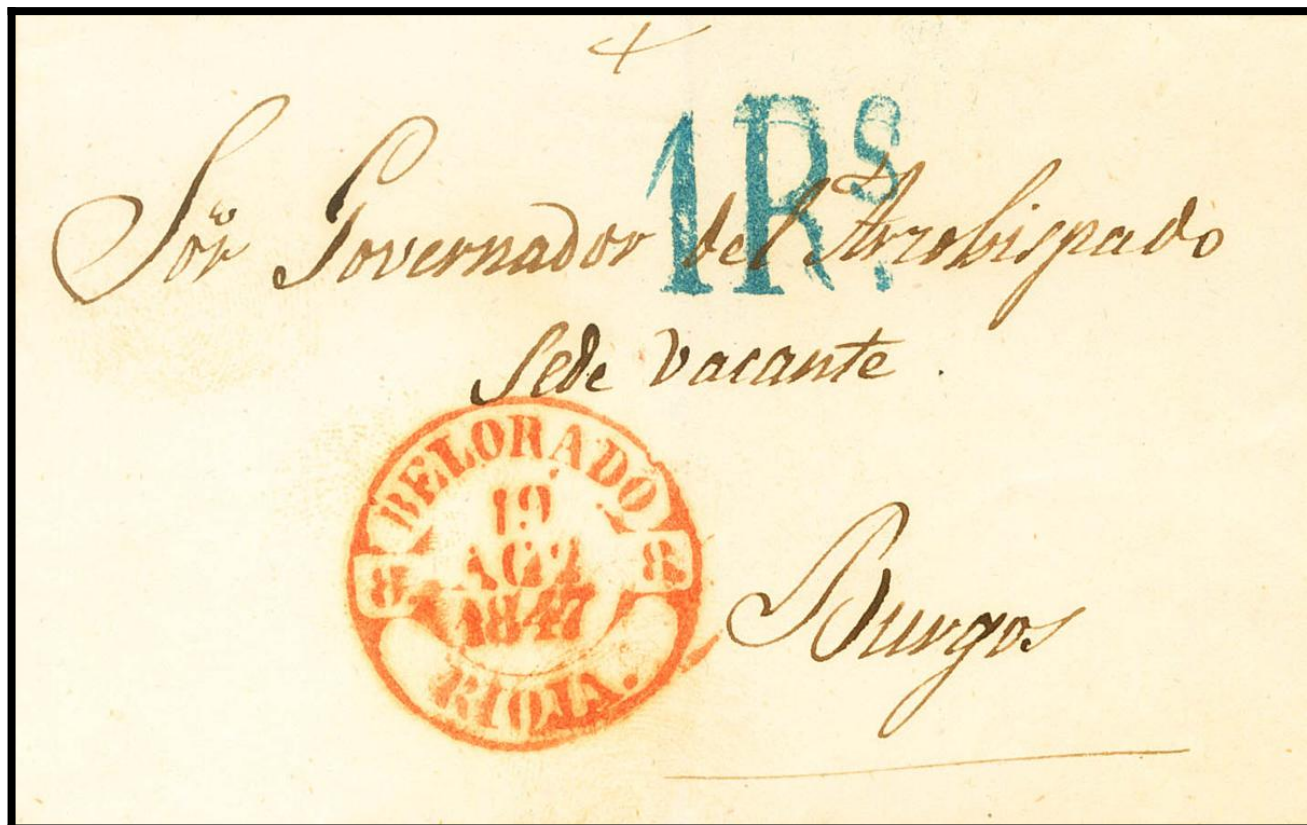 1Rs.
Sor Governador del Arzobispado
Sede vacante.
BELORADO
8 8
19
AGO
1847
RIOJA.
Burgos